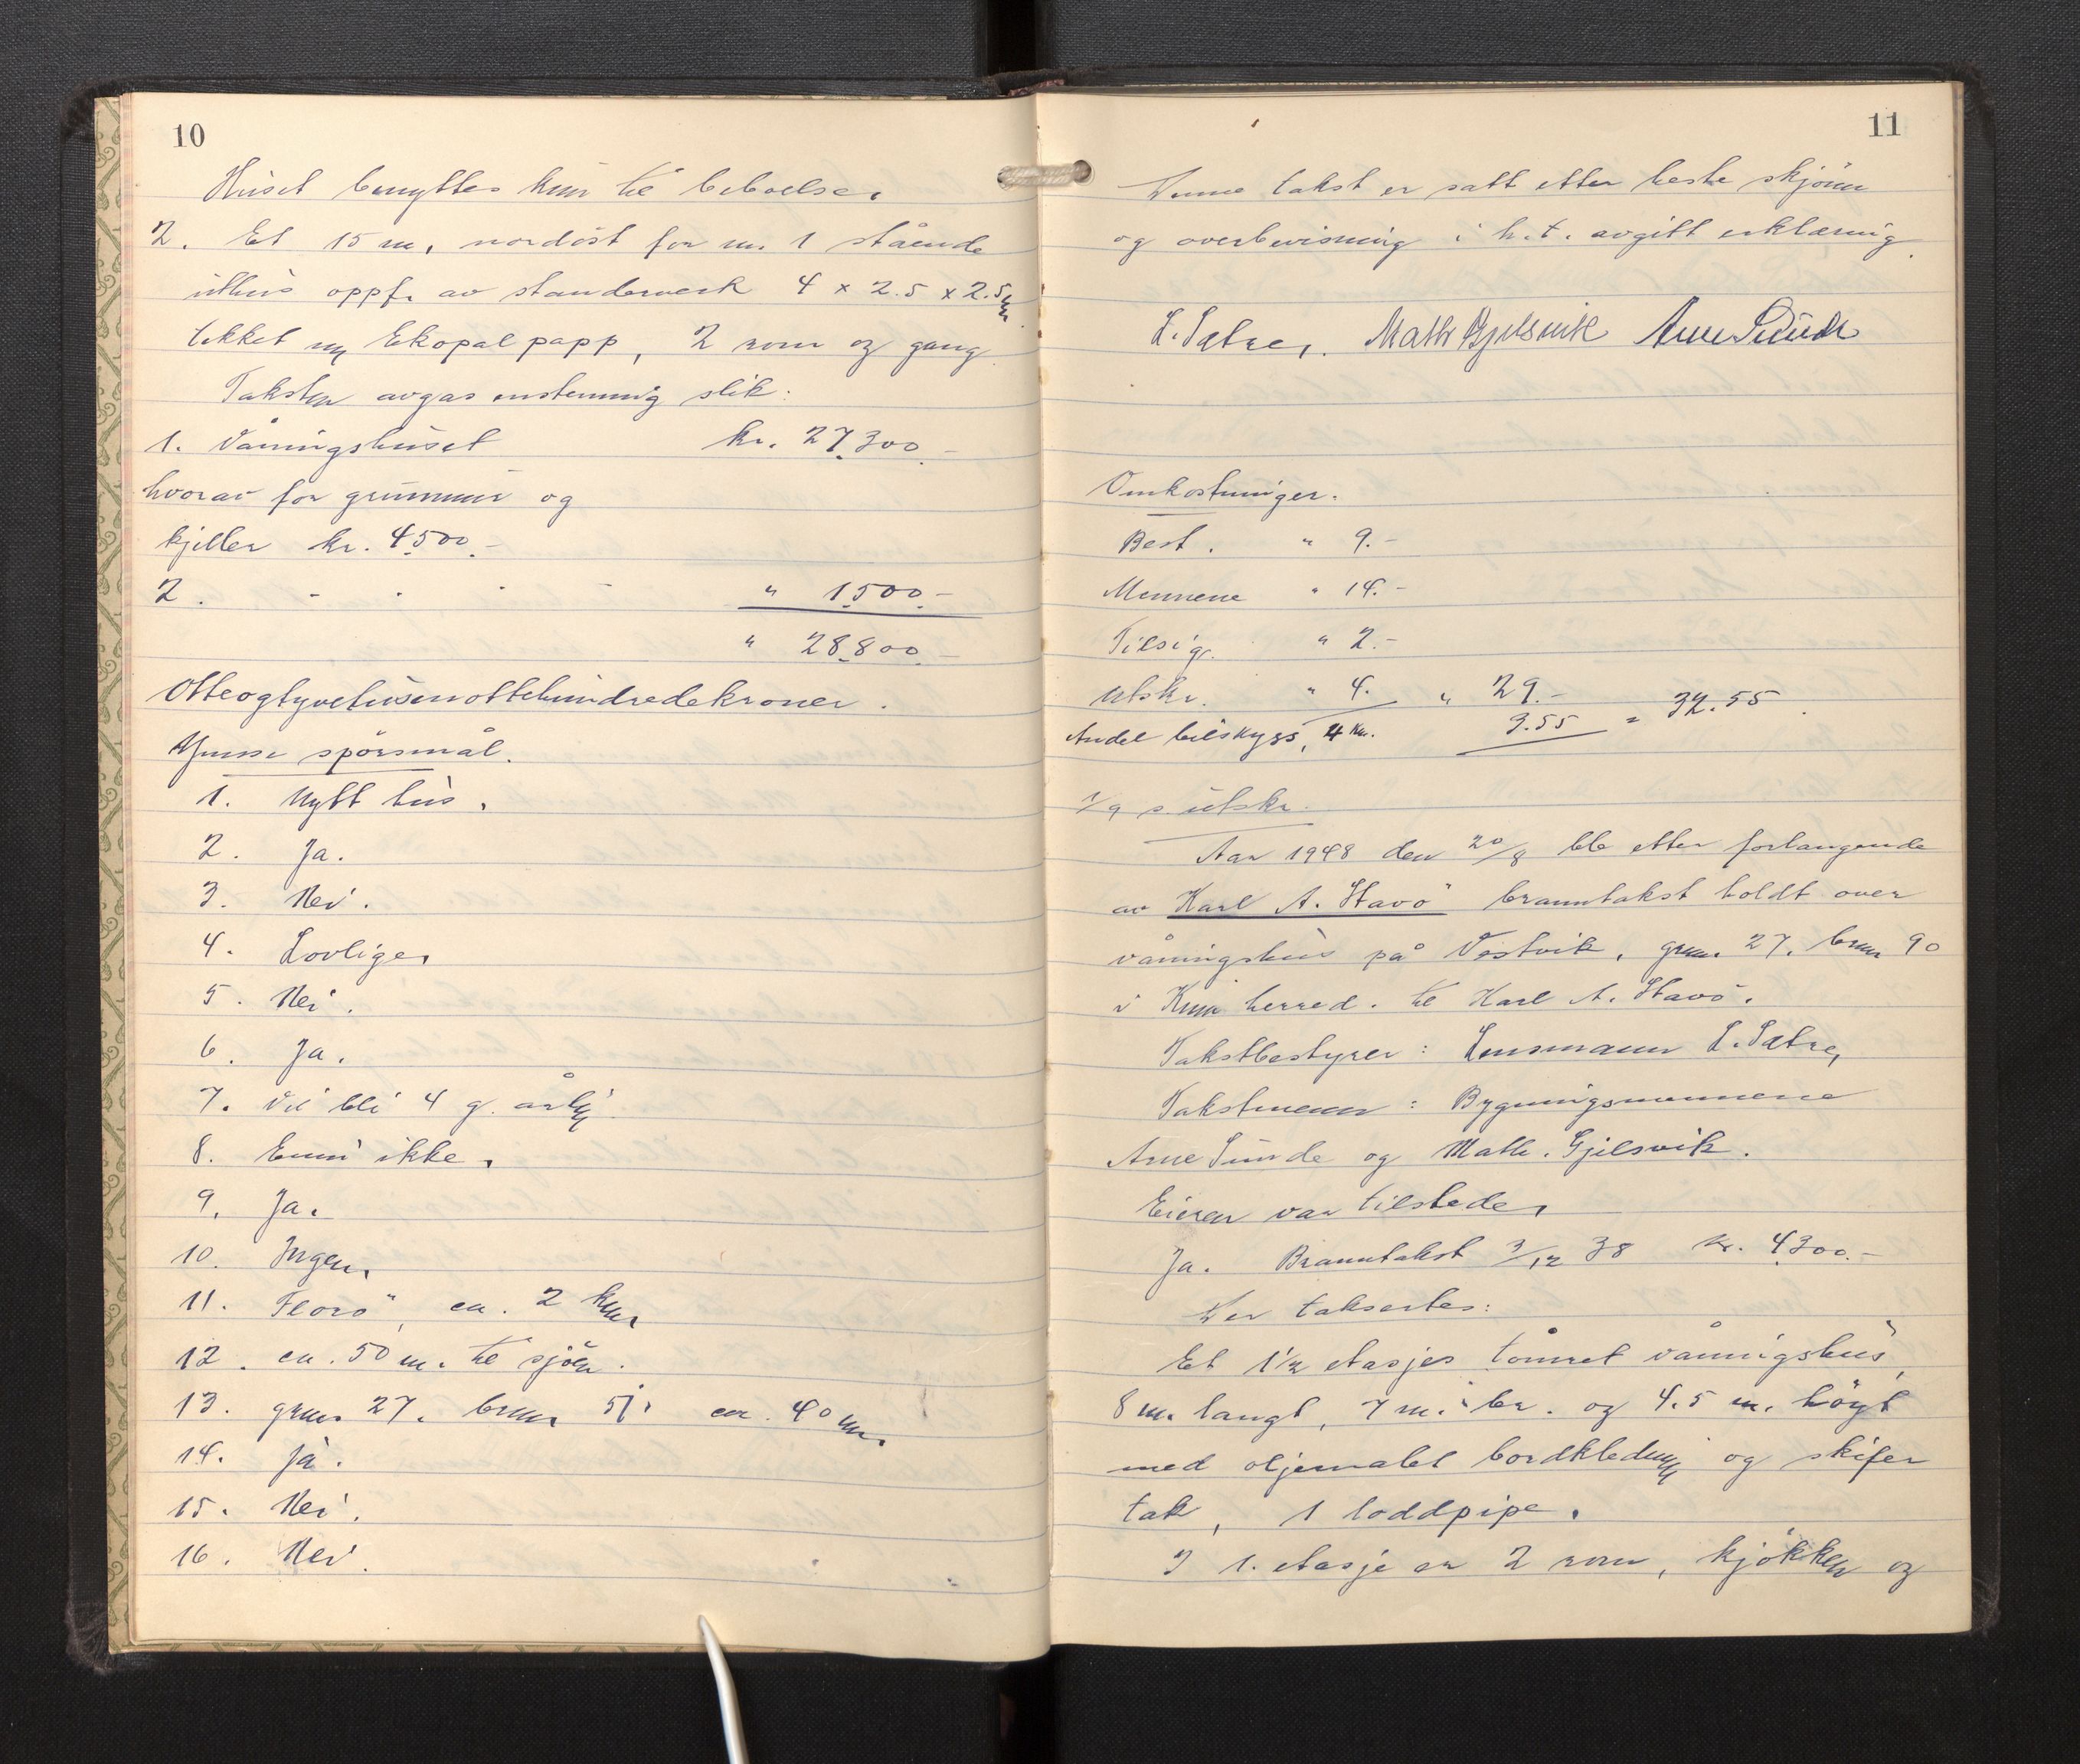 10
Huset benyttes kun til beboelse.
2. Et 15 m. nordöst for nr. 1 stående
uthus oppf. av standerverk 4 x 2.5 x 2.5 m
tekket m/ Ekopal papp, 2 rom og gang.
Taksten avgas enstemmig slik:
1. Våningshuset kr. 27.300.-
hvorav for grunnmur og
kjeller kr. 4.500.-
2. - - - - " 1.500.-
" 28.800.-
Otteogtyvetusenottehundredekroner.
Ymse spörsmål.
1. Nytt hus.
2. Ja.
3. Nei.
4. Lovlige.
5. Nei.
6. Ja.
7. Vil bli 4 g. årlig.
8. Ennu ikke.
9. Ja.
10. Ingen.
11. Florö, ca. 2 km.
12. ca. 50 m. til sjöen.
13. gnr. 27. bnr. 51. ca. 40 m.
14. Ja.
15. Nei.
16. Nei.
11
Denne takst er satt etter beste skjönn
og overbevisning i h.t. avgitt erklæring.
L. Sætre. Math Gjelsvik Arne Sunde
Omkostninger.
Best. " 9.-
Mennene " 14.-
Tilsig. " 2.-
Utskr. " 4. " 29.-
Andel bilskyss, 4 km. 3.55 = 32.55.
1/9 s. utskr.
Aar 1948 den 20/8 ble etter forlangende
av Karl A. Stavö branntakst holdt over
våningshus på Vestvik, gnr. 27. bnr 90
i Kinn herred. til Karl A. Stavö.
Takstbestyrer: Lensmann L. Sætre,
Takstmenn: Bygningsmennene
Arne Sunde og Math. Gjelsvik.
Eieren var tilstede.
Ja. Branntakst 3/12 38 kr. 4.300.-
Der taksertes:
Et 1 1/2 etasjes tömret våningshus,
8 m. langt, 7 m. br. og 4.5 m. höyt
med oljemalet bordkledning og skifer
tak, 1 loddpipe.
I 1. etasje er 2 rom, kjökken og